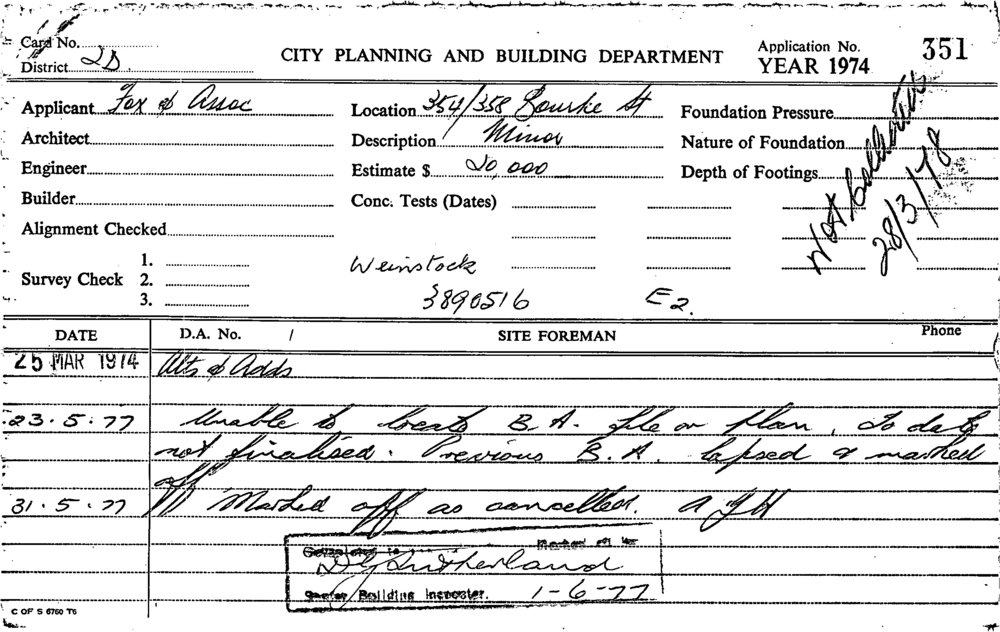 Card No.
District 2D. CITY PLANNING AND BUILDING DEPARTMENT Application No. 351
YEAR 1974
Applicant Fox & Assoc Location 354/358 Bourke St Foundation Pressure
Architect Description Minor Nature of Foundation
Engineer Estimate $ 20,000 Depth of Footings
Builder Conc. Tests (Dates)
Not
28/3/78
Alignment Checked
Survey Check 1. 2. 3.
Weinstock
3890516 E2.
DATE D.A. No. / SITE FOREMAN Phone
25 MAR 1974 Alts & Adds
23.5.77 Unable to locate B.A. file or plan. To date
not finalised. Previous B.A. lapsed & marked
off
31.5.77 Marked off as cancelled. AJH
Marked off
D G Sutherland
Senior Building Inspector. 1-6-77
C OF S 6760 T6